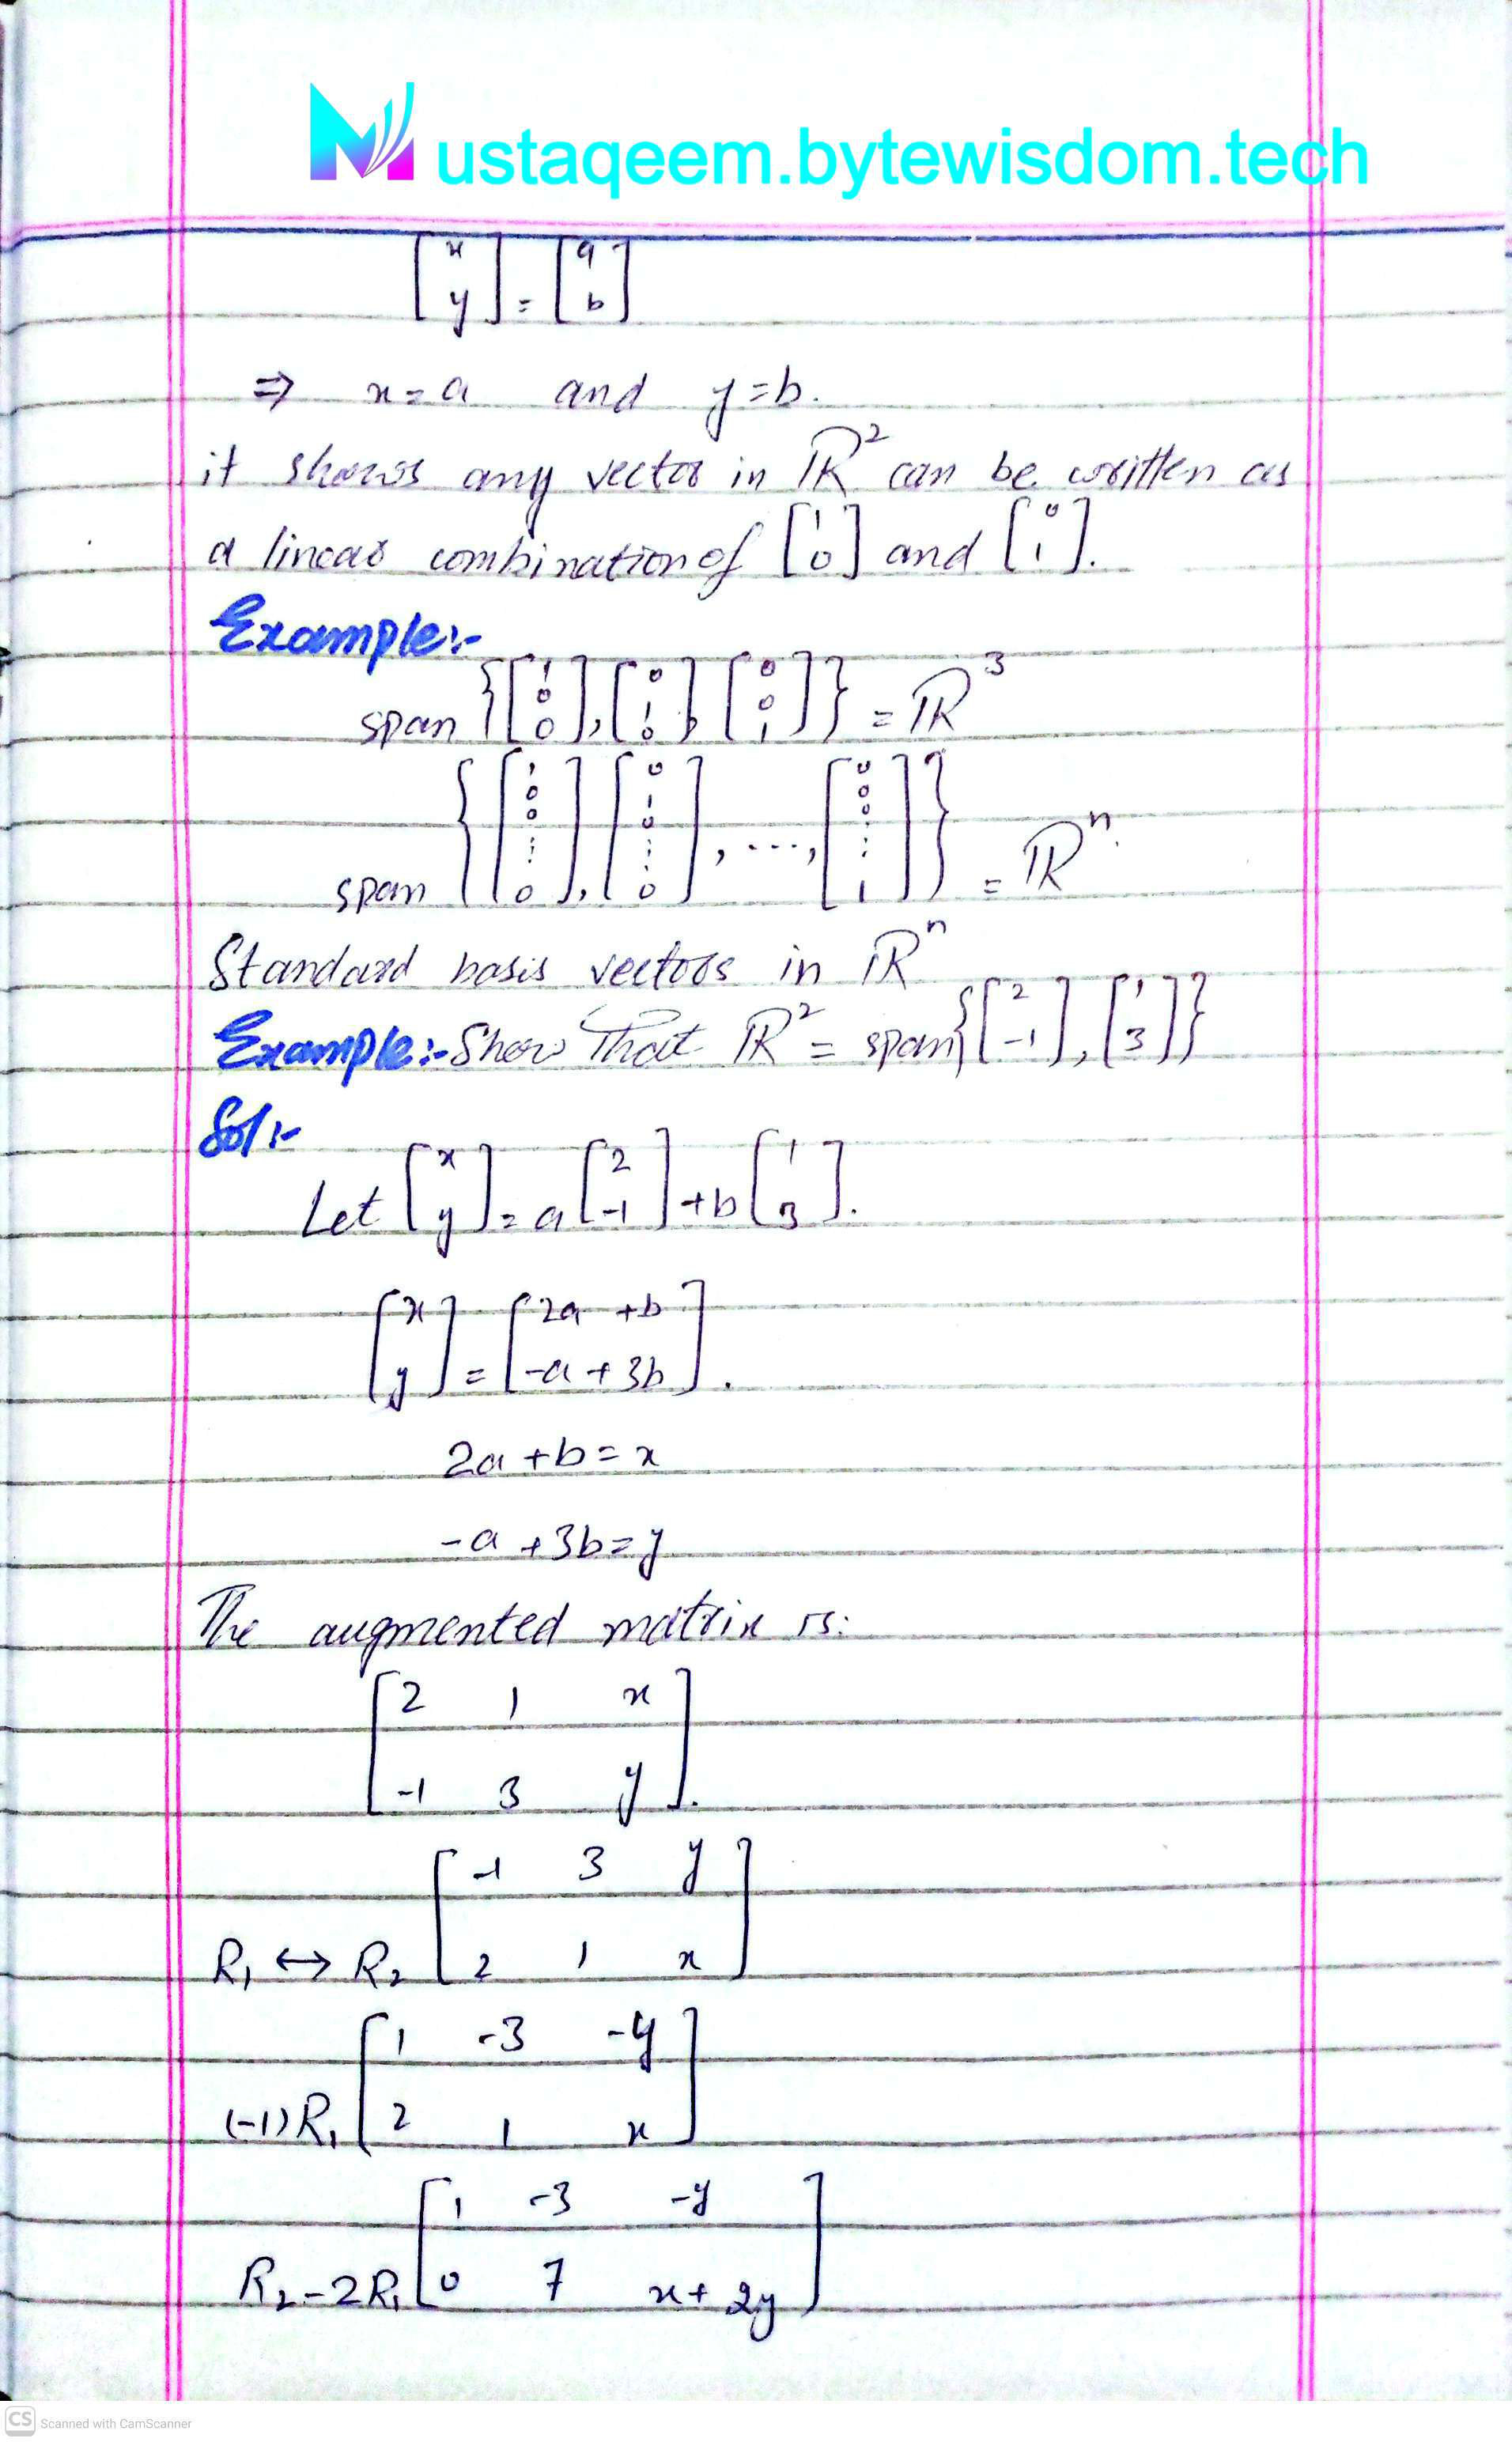 Mustaqeem.bytewisdom.tech
[x y] = [a b]
⇒ x = a and y = b.
it shows any vector in ℝ² can be written as
a linear combination of [1 0] and [0 1].
Example:-
span {[1 0 0], [0 1 0], [0 0 1]} = ℝ³
span {[1 0 0 ⋮ 0], [0 1 0 ⋮ 0], ..., [0 0 0 ⋮ 1]} = ℝⁿ.
Standard basis vectors in ℝⁿ
Example:- Show That ℝ² = span{[2 -1], [1 3]}
Sol:-
Let [x y] = a[2 -1] + b[1 3].
[x y] = [2a + b -a + 3b].
2a + b = x
-a + 3b = y
The augmented matrix is:
[2 1 x
-1 3 y].
[-1 3 y
R₁ ↔ R₂ 2 1 x]
[1 -3 -y
(-1)R₁ 2 1 x]
[1 -3 -y
R₂-2R₁ 0 7 x+2y]
CS Scanned with CamScanner